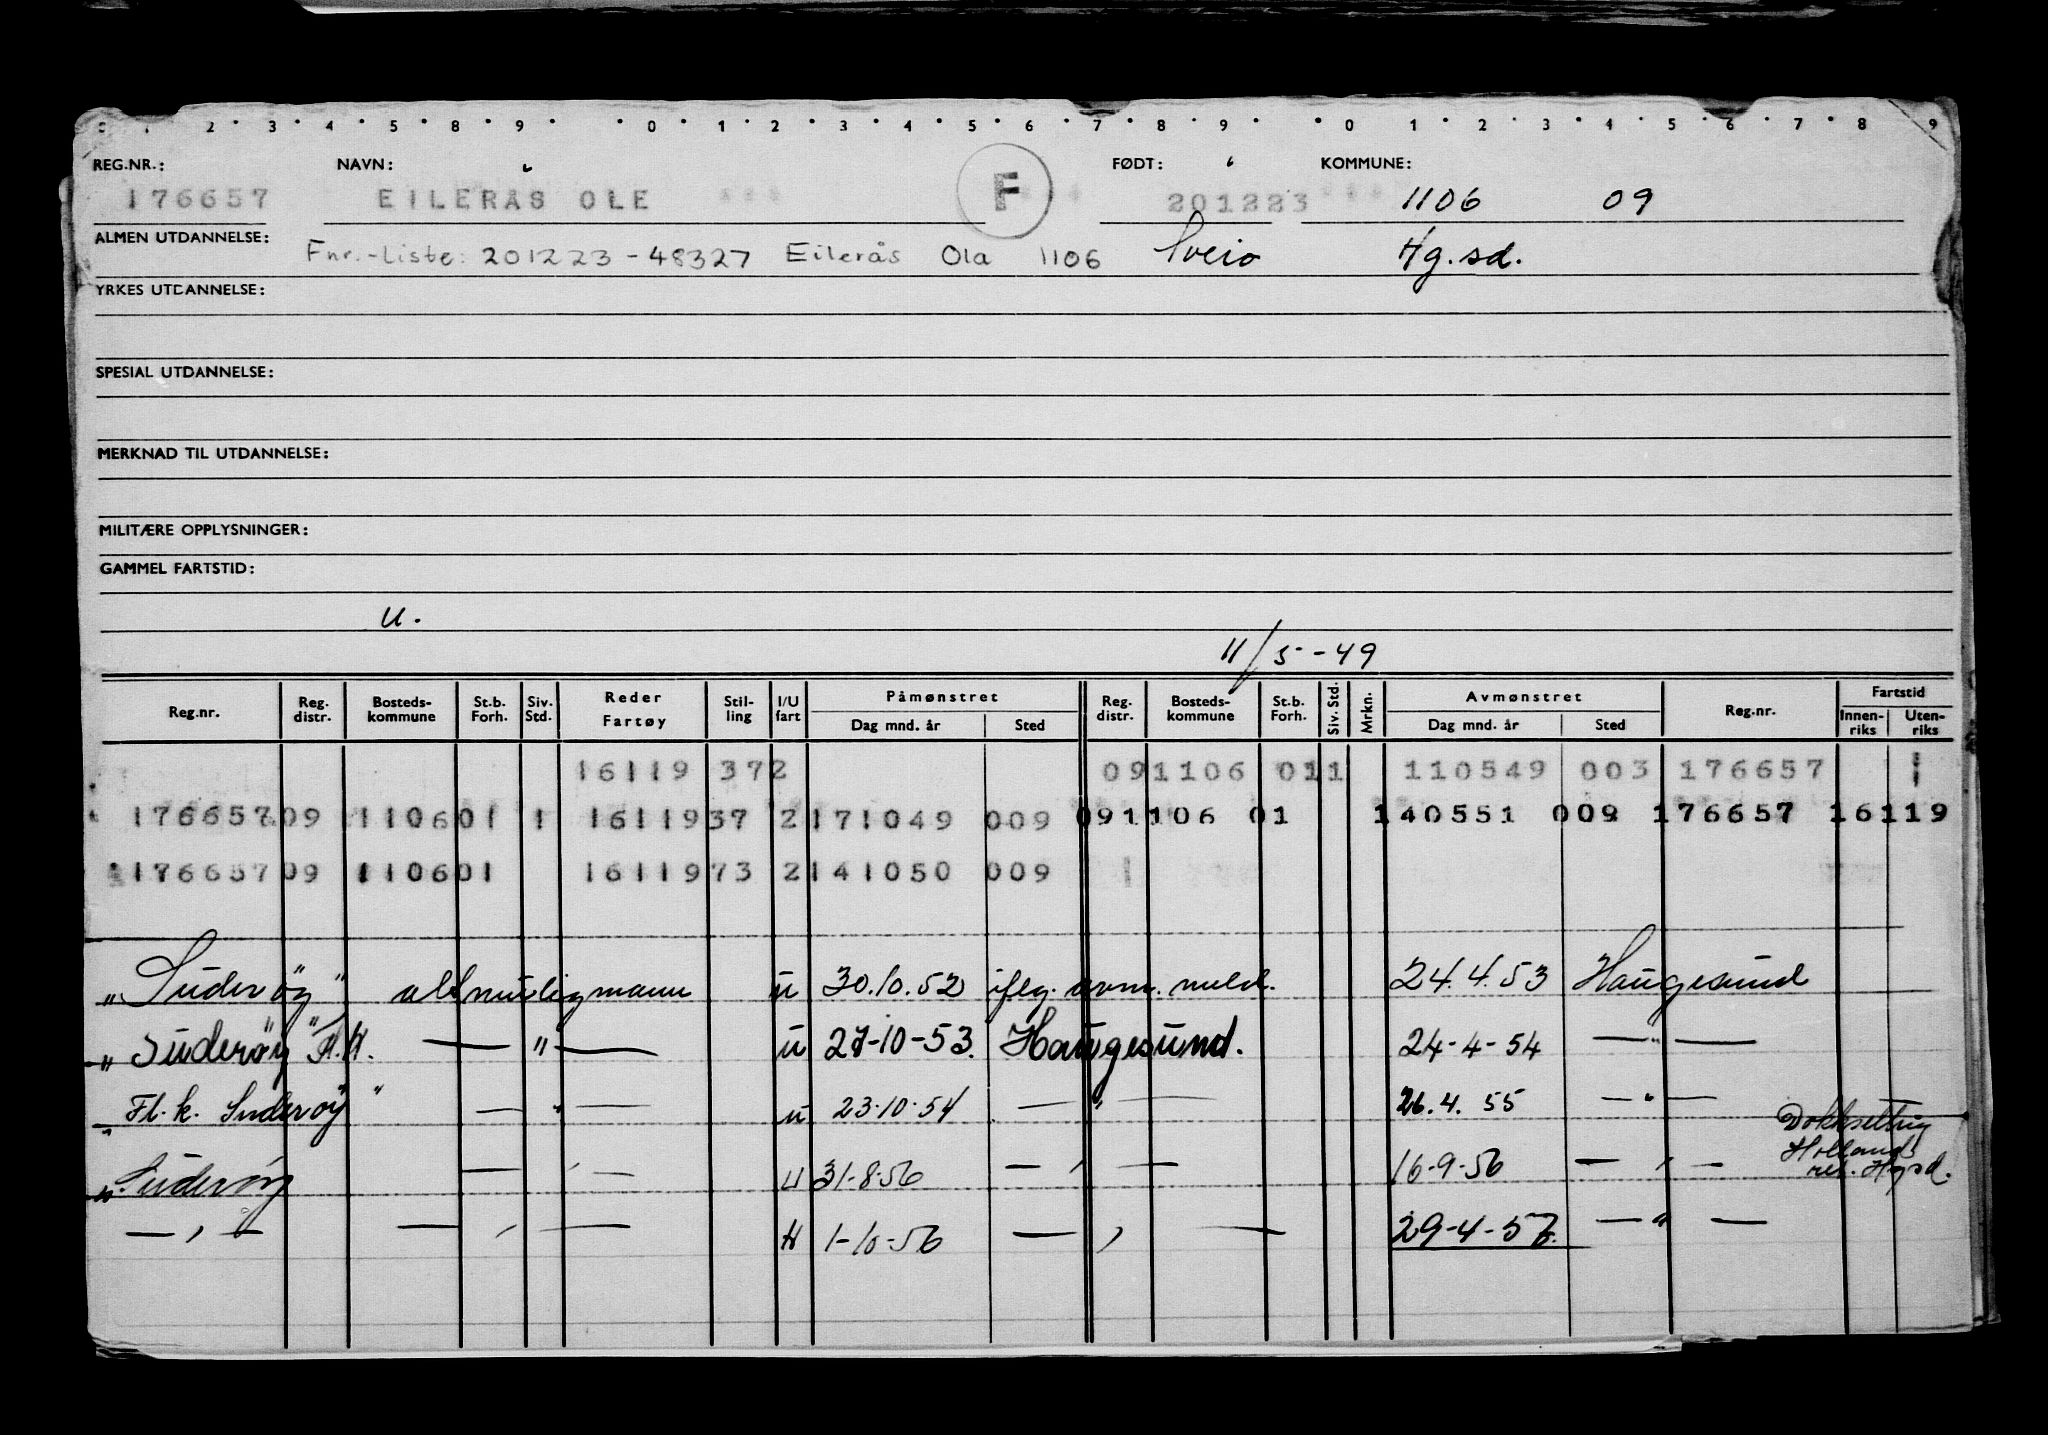 0 1 2 3 4 5 8 9 0 1 2 3 4 5 6 7 8 9 0 1 2 3 4 5 6 7 8 9
REG.NR.: NAVN: FØDT: KOMMUNE:
176657 EILERÅS OLE F 201223 1106 09
ALMEN UTDANNELSE:
Fnr.-Liste: 201223-48327 Eilerås Ola 1106 Sveio Hg.sd.
YRKES UTDANNELSE:
SPESIAL UTDANNELSE:
MERKNAD TIL UTDANNELSE:
MILITÆRE OPPLYSNINGER:
GAMMEL FARTSTID:
U.
11/5-49
Reg.nr. Reg. distr. Bosteds-kommune St.b. Forh. Siv. Std. Reder Fartøy Stil-ling I/U fart Påmønstret Dag mnd. år Sted Reg. distr. Bosteds-kommune St.b. Forh. Siv. Std. Mrkn. Avmønstret Dag mnd. år Sted Reg.nr. Fartstid Innen-riks Uten-riks
16119 37 2 09 1106 01 1 110549 003 176657
176657 09 1106 01 1 16119 37 2 171049 009 09 1106 01 140551 009 176657 16119
176657 09 1106 01 16119 73 2 141050 009
"Suderøy" altmuligmann u 30.10.52 ifлg. avm. meld. 24.4.53 Haugesund
"Suderøy" Fl.K. — " — u 27-10-53. Haugesund. 24-4-54 — " —
"Fl.k. Suderøy" — " — u 23.10.54 — " — 26.4.55 — " —
Dokksetting
Holland
"Suderøy — " — U 31-8-56 — " — 16-9-56 — " — Hgsd.
— " — — " — 1-10-56 — " — 29-4-57. — " —